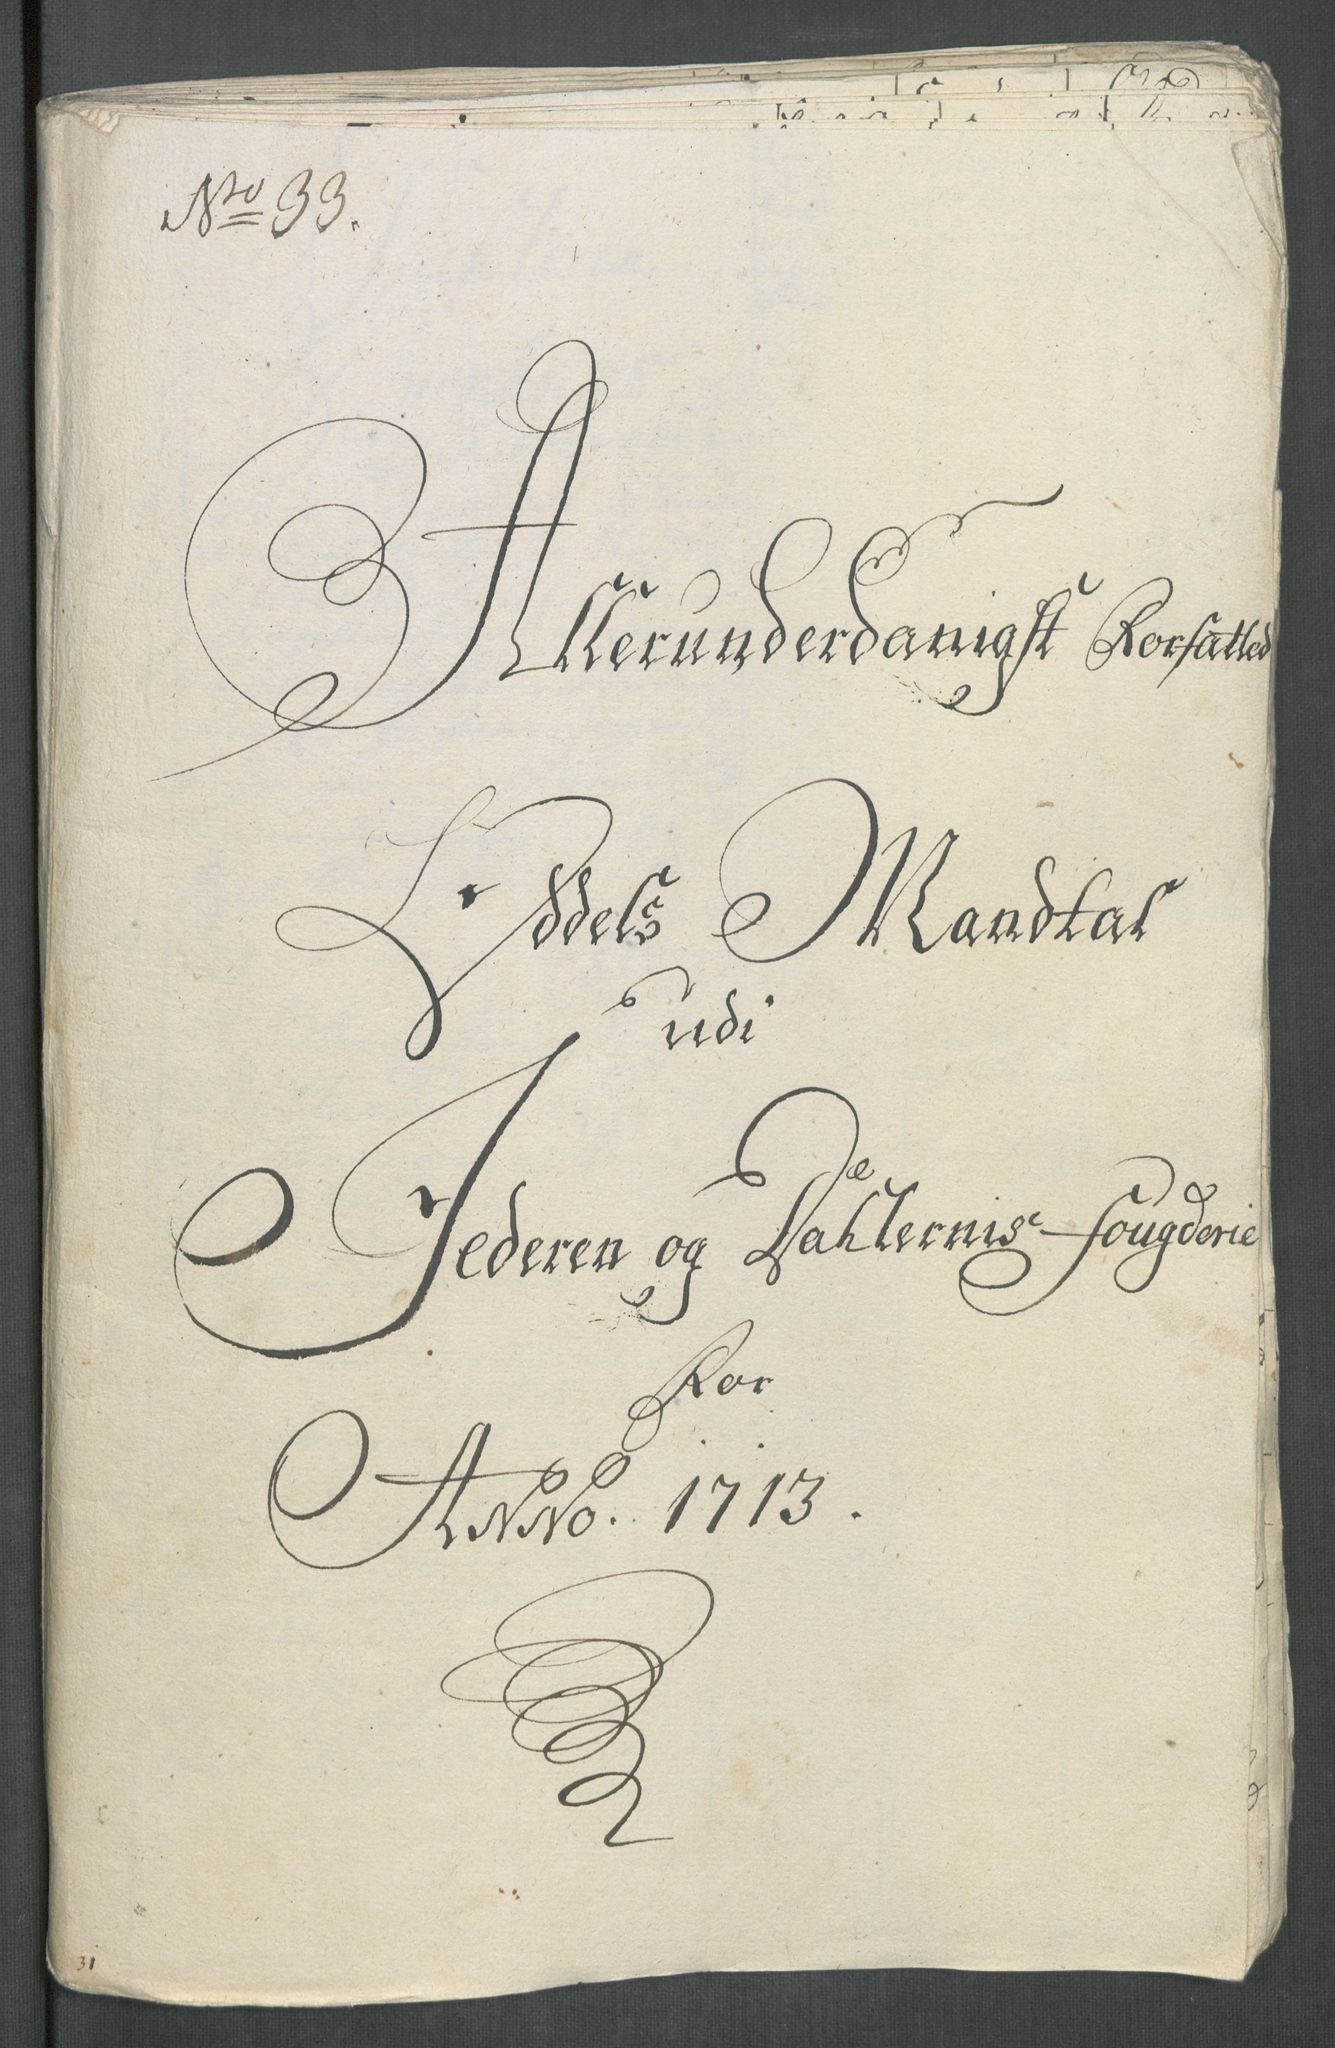 No 33.
Allerunderdanigst Forfatted
Oddels Mandtal
udi
Jederen og Dahlernis fougderie
For
Anno. 1713.
31